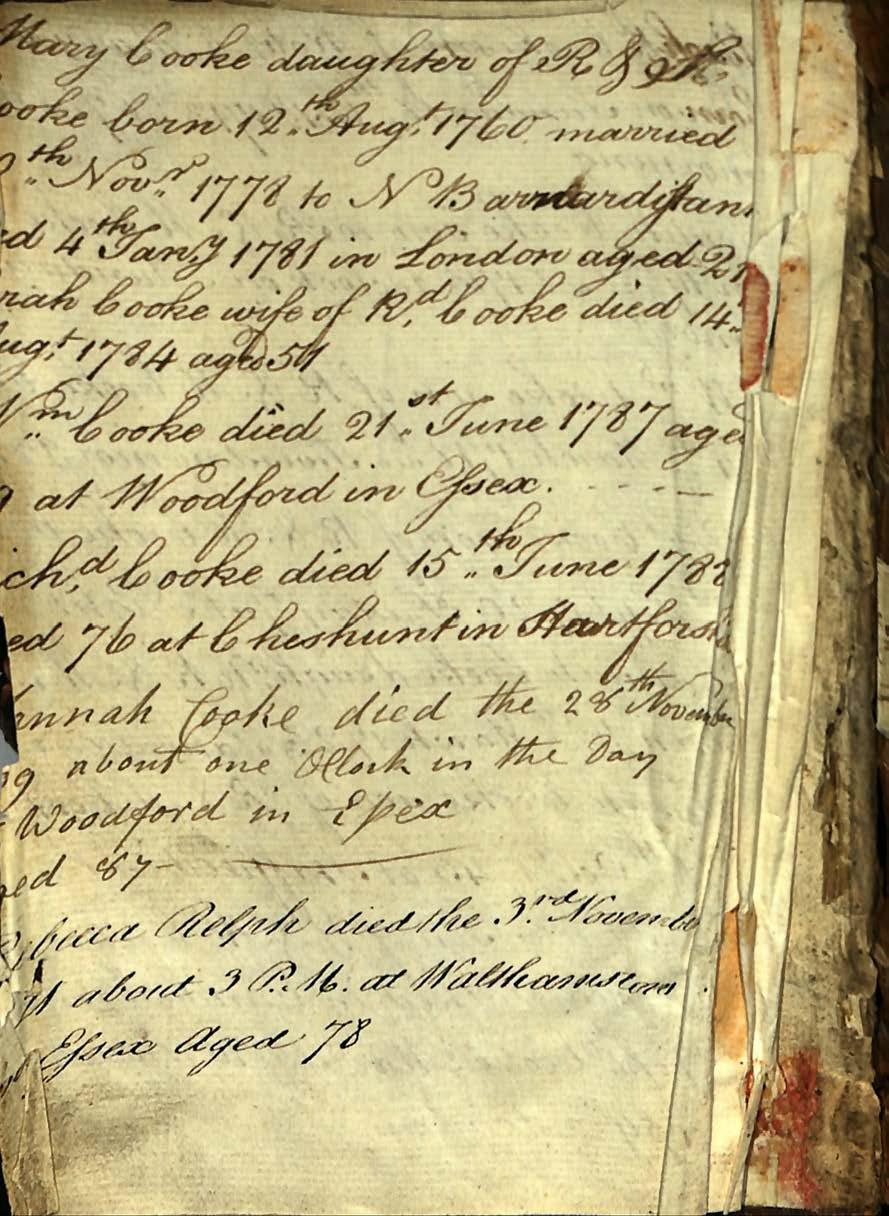 Mary Cooke daughter of R & H.
ooke born 12.th Aug.t 1760 married
th Nov.r 1778 to N Barnardistan
ed 4th Jan.y 1781 in London aged 21
rah Cooke wife of R.d Cooke died 14.
ug.t 1784 aged 51
W.m Cooke died 21.st June 1787 aged
at Woodford in Essex. - - - -
ich.d Cooke died 15.th June 1788
ed 76 at Cheshunt in Hartfords
annah Cooke died the 28th November
09 about one OClock in the Day
Woodford in Essex
ged 87-
ebecca Relph died the 3.rd Novembe
71 about 3 P.M. at Walthamstow
Essex Aged 78